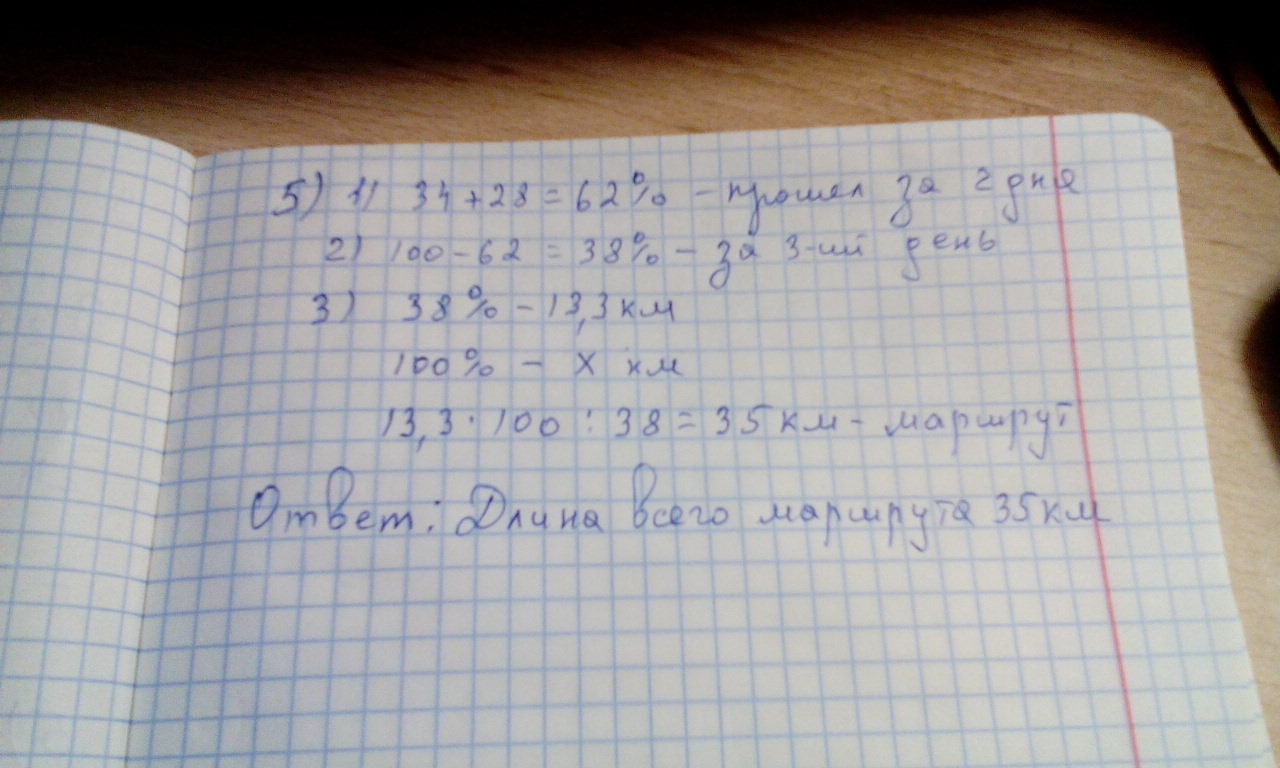 5) 1) 34+28=62% - прошел за 2 дня
2) 100-62=38% - за 3-ий день
3) 38% - 13,3 км
100% - х км
13,3·100:38=35 км - маршрут
Ответ: Длина всего маршрута 35 км